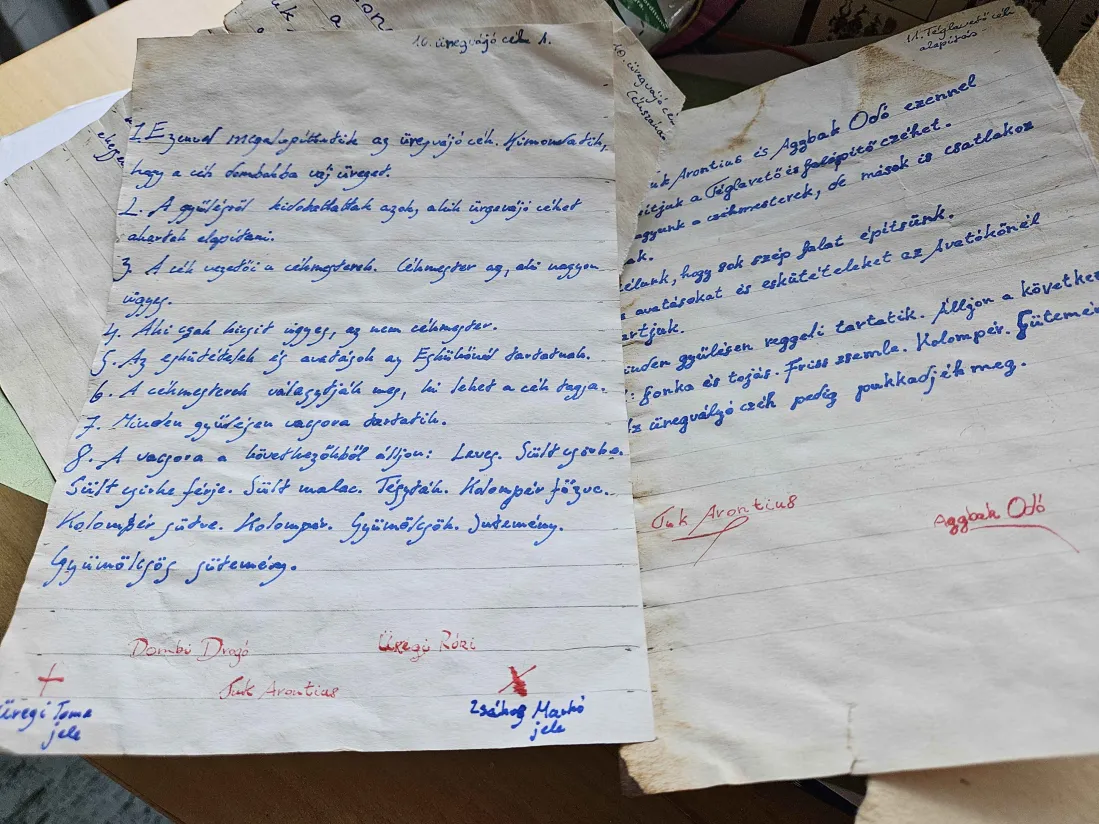 10. üregvájó céh 1.
1. Ezennel megalapíttatik az üregvájó céh. Kimondatik,
hogy a céh dombokba váj üreget.
2. A gyűlésről kidobattattak azok, akik ürgevájó céhet
akartak alapítani.
3. A céh vezetői a céhmesterek. Céhmester az, aki nagyon
ügyes.
4. Aki csak kicsit ügyes, az nem céhmester.
5. Az eskütételek és avatások az Eskükőnél tartatnak.
6. A céhmesterek választják meg, ki lehet a céh tagja.
7. Minden gyűlésen vacsora tartatik.
8. A vacsora a következőkből álljon: Leves. Sült csirke.
Sült csirke férje. Sült malac. Tészták. Kolompér főzve.
Kolompér sütve. Kolompér. Gyümölcsök. Sütemény.
Gyümölcsös sütemény.
Dombi Drogó
Üregi Rózi
Tuk Arontius
Üregi Toma
jele
Zsákos Markó
jele
11. Téglavető céh
alapítás
Tuk Arontius és Aggbak Odó ezennel
a Téglavető és falépítő czéhet.
vagyunk a céhmesterek, de mások is csatlakoz
célunk, hogy sok szép falat építsünk.
avatásokat és eskütételeket az Avatókőnél
tartjuk.
minden gyűlésen reggeli tartatik. Álljon a következő
sonka és tojás. Friss zsemle. Kolompér. Sütemény
Az üregvályó czéh pedig pukkadjék meg.
Tuk Arontius
Aggbak Odó
10. üregvájó céh